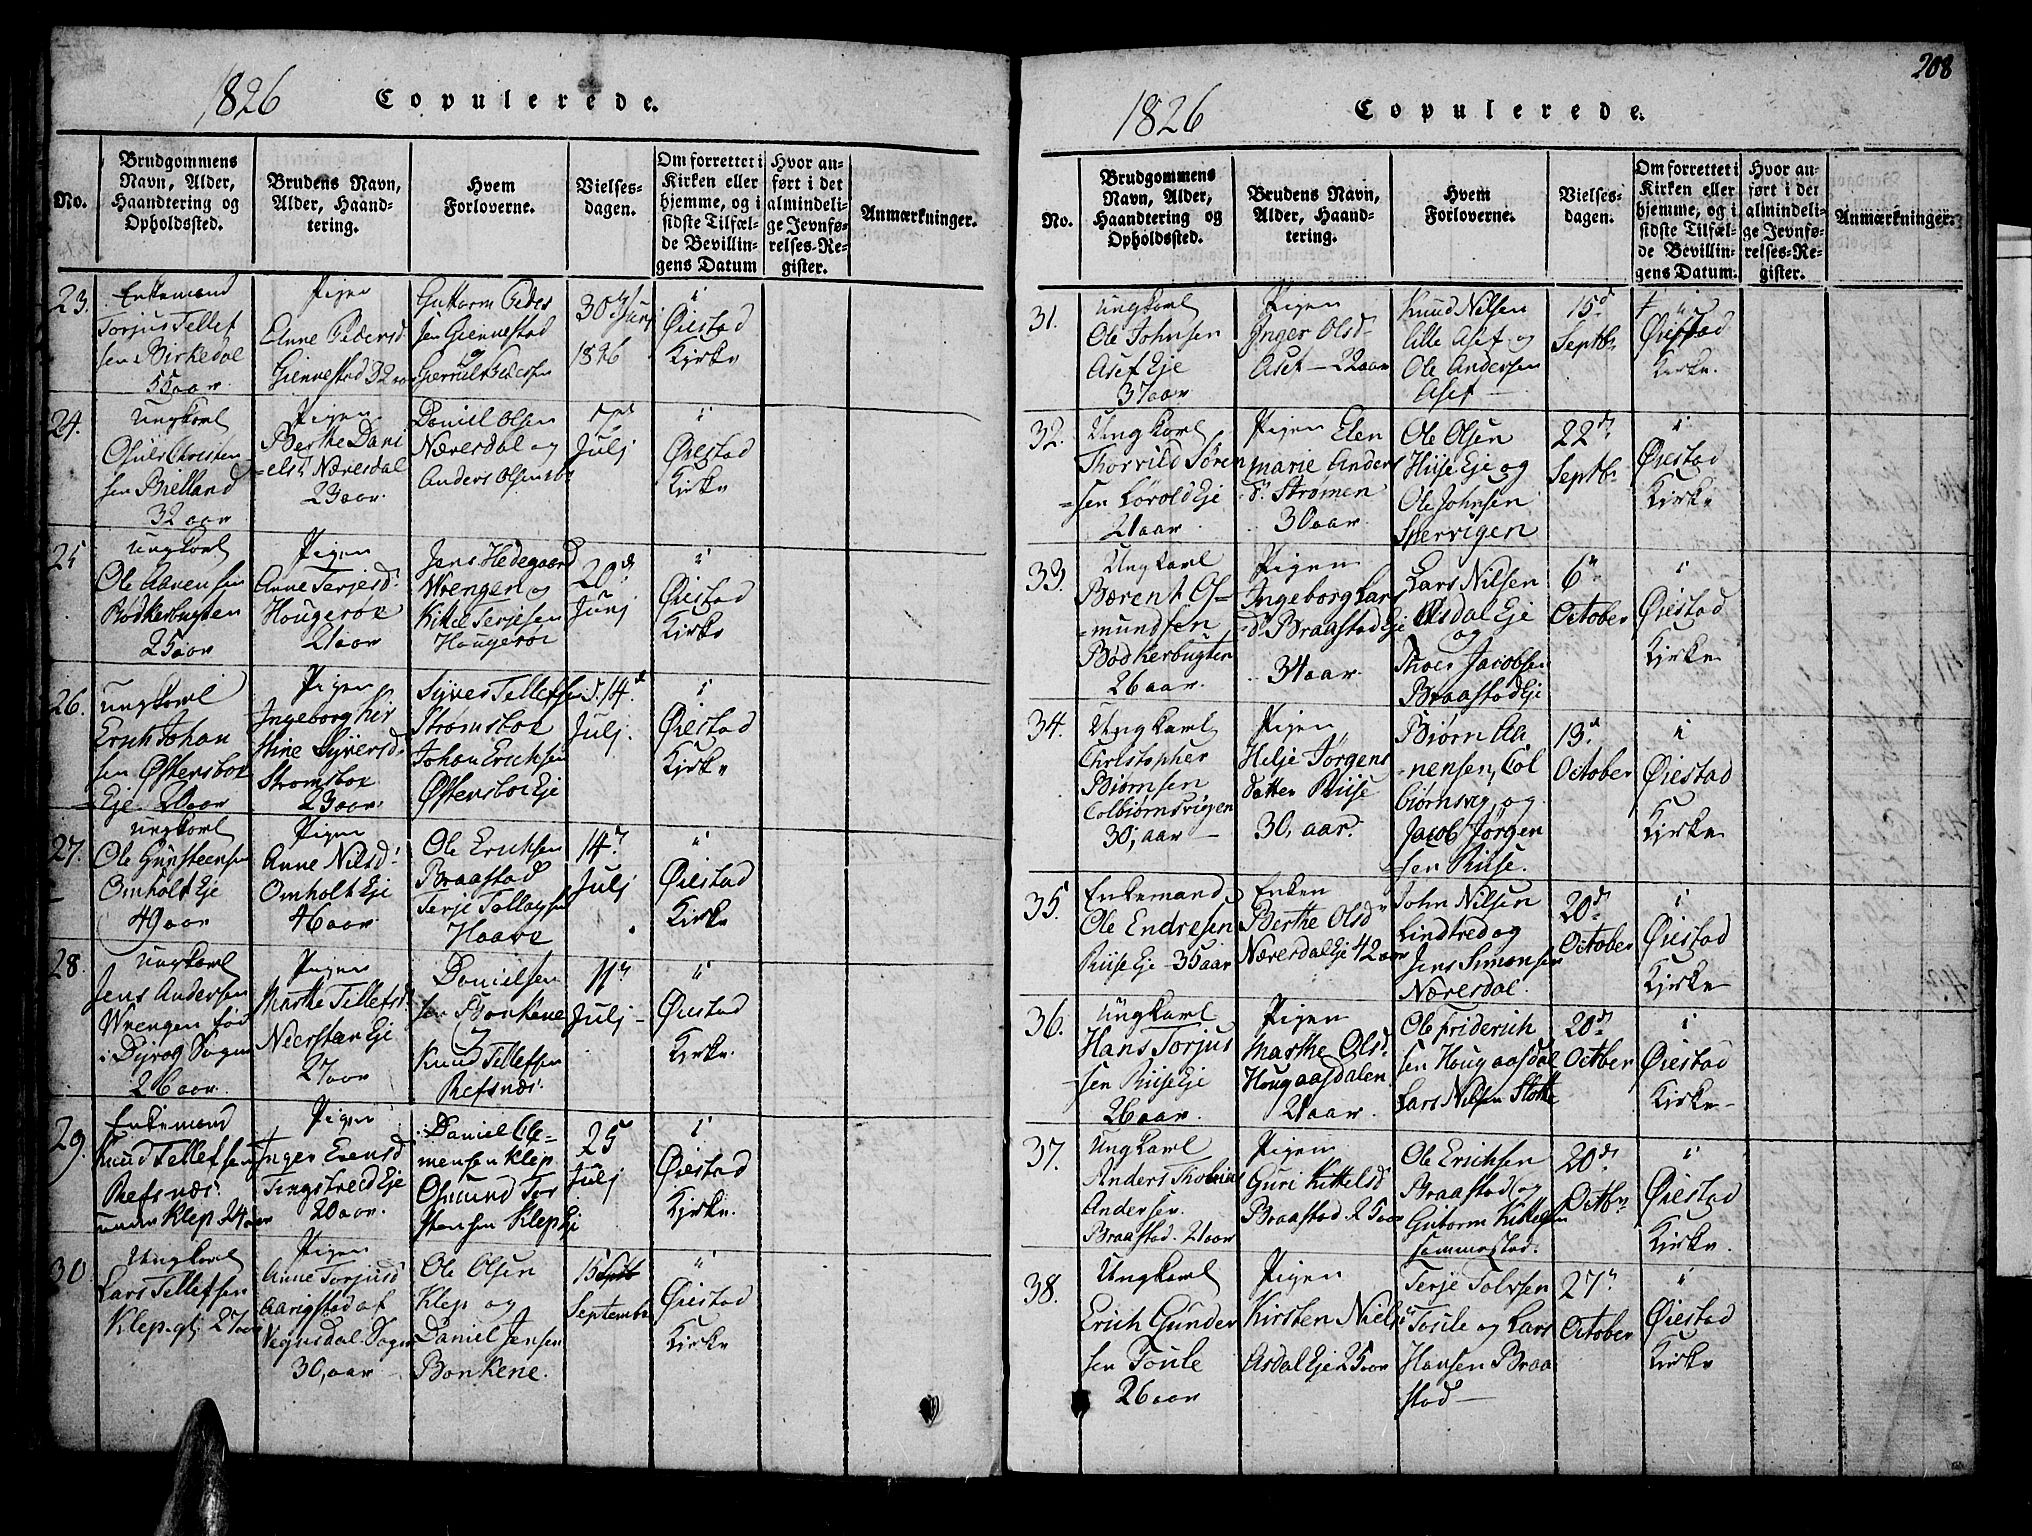 1826 Copulerede.
No.
Brudgommens
Navn, Alder,
Haandtering og
Opholdssted.
Brudens Navn,
Alder, Haand-
tering.
Hvem
Forloverne.
Vielses-
dagen.
Om forrettet i
Kirken eller
hjemme, og i
sidste Tilfæl-
de Bevillin-
gens Datum
Hvor an-
ført i det
almindeli-
ge Jevnfø-
relses-Re-
gister.
Anmærkninger.
23.
Enkemand
Torjus Tellef
sen Birkedal
55 aar
Pigen
Anne Pedersd
Giennestad 32 aar
Guttorm Peder
sen Giennestad
og
Pedersen
30
1826
i
Øiestad
Kirke
24.
Ungkarl
Christen
sen Bielland
32 aar
Pigen
Berthe Dani
elsd. Næresdal
23 aar.
Daniel Olsen
Næresdal og
Anders Olsen
Julj
i
Øiestad
Kirke
25
Ungkarl
Ole Aanensen
Bødkerbugten
25 aar
Pigen
Anne Terjesd.
Hougeroe
21 aar
Jens Hedegaard
Wrengen og
Kittel Terjesen
Hougeroe
20d
Junj
i
Øiestad
Kirke
26.
Ungkarl
Erich Johan
sen Østensboe
Eje 20 aar
Pigen
Ingeborg Kir
stine Syversd.
Strømsboe
23 aar
Syver Tellefsen
Strømsboe
Johan Erichsen
Østensboe Eje
14d
Julj.
i
Øiestad
Kirke
27.
Ungkarl
Ole Gunsteensen
Omholt Eje
49 aar
Pigen
Anne Nilsd.
Omholt Eje
46 aar
Ole Erichsen
Braastad
Terje Tellefsen
Haave
14d
Julj
i
Øiestad
Kirke
28.
Ungkarl
Jens Andersen
Wrengen fød
i Dyvog Sogn
26 aar.
Pigen
Marthe Tellefsd.
Neersteen Eje
27 aar
Danielsen
Bonkene
Knud Tellefsen
Refsnæs.
11d
Julj
i
Øiestad
Kirke.
29.
Enkemand
Knud Tellefsen
Refsnæs
under Klep 24 aar
Pigen
Inger Evensd
Tingstved Eje
20 aar.
Daniel Cle-
mensen Klep
Osmund Tor
stensen Klep Eje
25
Julj
i
Øiestad
Kirke.
30
Ungkarl
Lars Tellefsen
Klep 27 aar
Pigen
Anne Torjusd
Aarigstad af
Vegusdal Sogn
30, aar
Ole Olsen
Klep og
Daniel Jensen
Bonkene.
15
September
i
Øiestad
Kirke
208
1826 Copulerede.
No.
Brudgommens
Navn, Alder,
Haandtering og
Opholdssted.
Brudens Navn,
Alder, Haand-
tering.
Hvem
Forloverne.
Vielses-
dagen.
Om forrettet i
Kirken eller
hjemme, og i
sidste Tilfæl-
de Bevillin-
gens Datum.
Hvor an-
ført i det
almindeli-
ge Jevnfø-
relses-Re-
gister.
Anmærkninger.
31.
Ungkarl
Ole Johnsen
Aset Eje
37 aar
Pigen
Inger Olsd
Aset – 22 aar
Knud Nilsen
Lille Aset og
Ole Andersen
Aset
15d
Septbr
i
Øiestad
Kirke.
32.
Ungkarl
Thorvild Søren
sen Løvold Eje
21 aar
Pigen Elen
Marie Anders
d. Strømen
30 aar.
Ole Olsen
Hiise Eje og
Ole Johnsen
Spervigen
22d
Septbr
i
Øiestad
Kirke
33.
Ungkarl
Berent Os-
mundsen
Bødkerbugten
26 aar.
Pigen
Ingeborg Lars
d. Braastad Eje
34 aar.
Lars Nilsen
Asdal Eje
og
Thoer Jacobsen
Braastad Eje
6
October
i
Øiestad
Kirke
34.
Ungkarl
Christopher
Biørnsen
Colbiørnsvigen
30, aar
Pigen
Helje Jørgens
datter Riise
30, aar.
Biørn Aa
nensen, Col
biørnsvig og
Jacob Jørgen
sen Riise.
13d
October
i
Øiestad
Kirke
35.
Enkemand
Ole Endresen
Riise Eje 35 aar
Enken
Berthe Olsd
Næresdal Eje 42 aar
John Nilsen
Lindtved og
Jens Simonsen
Næresdal.
20d
October
i
Øiestad
Kirke
36.
Ungkarl
Hans Torjus
sen Riise Eje
26 aar.
Pigen
Marthe Olsd.
Hougaasdalen
21 aar.
Ole Friderich
sen Hougaasdal
Lars Nilsen Slotte
20d
October
i
Øiestad
Kirke
37.
Ungkarl
Anders
Andersen
Braastad. 21 aar
Pigen
Guri Kittelsd
Braastad 25 aar
Ole Erichsen
Braastad og
Gutorm Kittelsen
Sommestad.
20d.
Octbr
i
Øiestad
Kirke.
38.
Ungkarl
Erich Gunder
sen Toule
26 aar
Pigen
Kirsten Niels
Asdal Eje 25 aar
Terje Talvsen
Toule og Lars
Hansen Braa
stad
27
October
i
Øiestad
Kirke